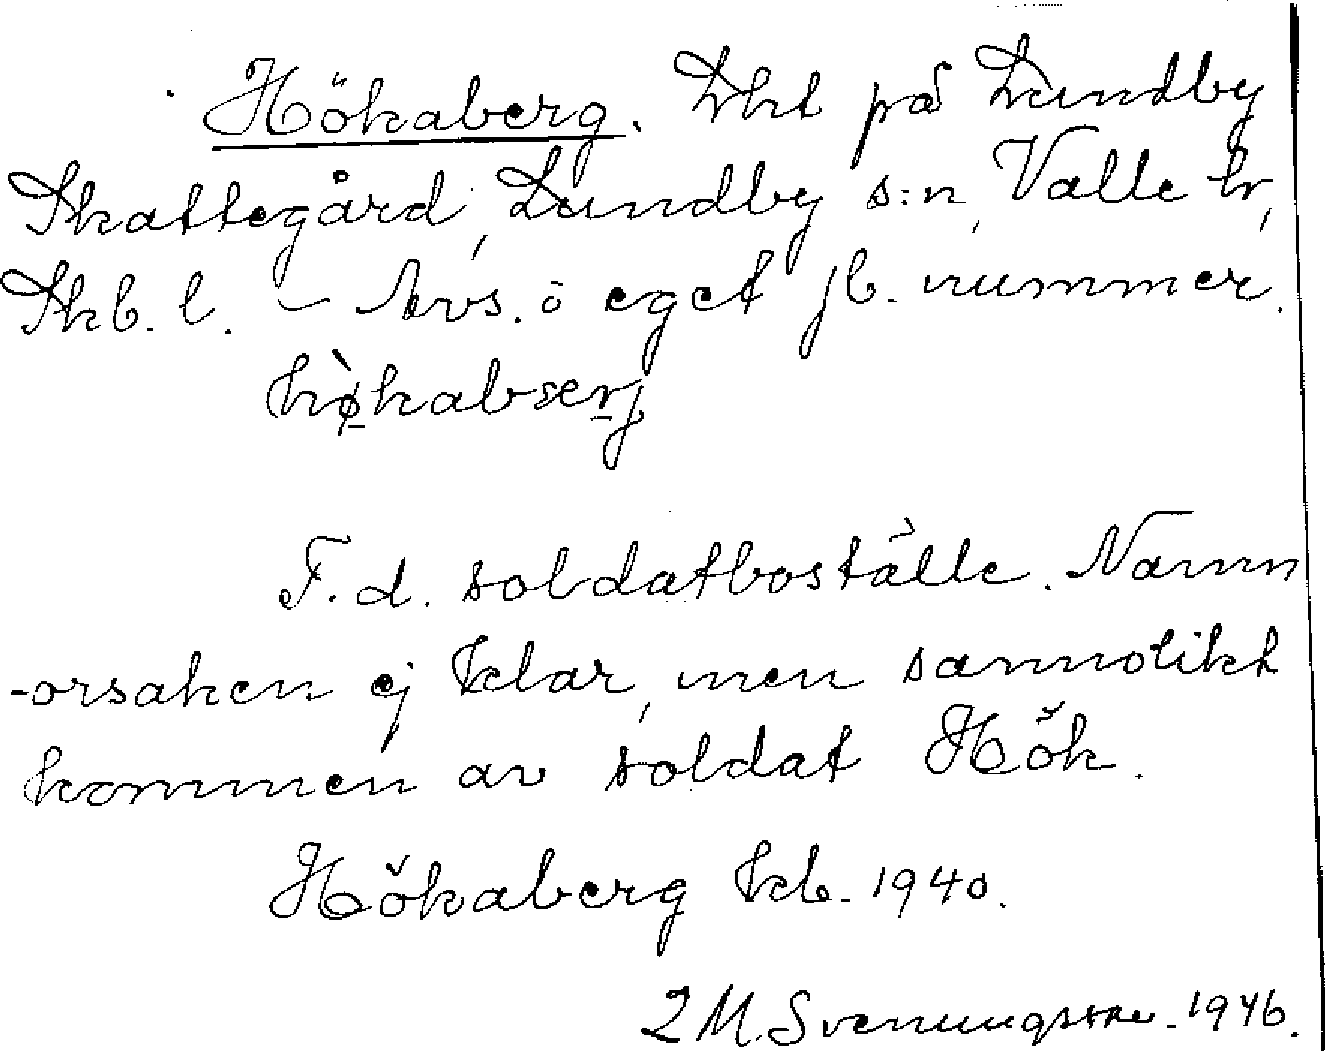 Hökaberg. Lht på Lundby
Skattegård, Lundby s:n, Valle hd,
Skb. l. – Avs. ö eget jb. nummer.
hø̀kabærj
F.d. soldatboställe. Namn
-orsaken ej klar, men sannolikt
kommen av soldat Hök.
Hökaberg kb. 1940.
L M. Svenungsson. 1946.